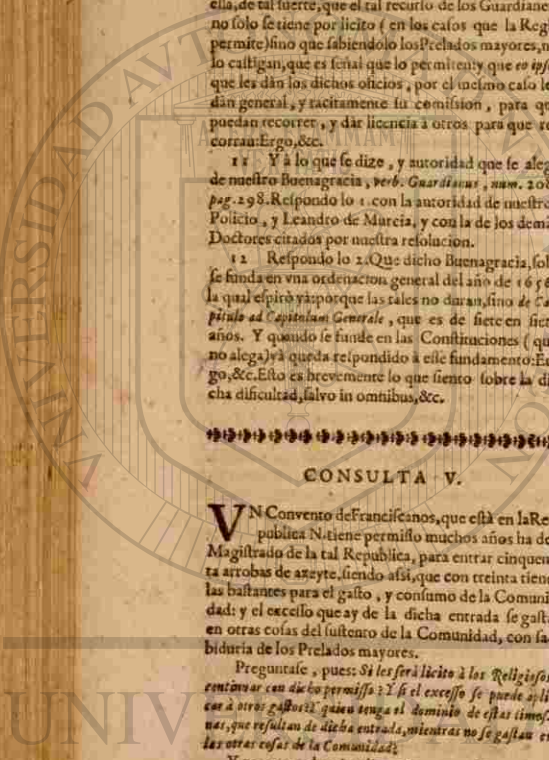 ella, de tal suerte, que el tal recurso de los Guardiane
no solo se tiene por licito ( en los casos que la Reg
permite)sino que sabiendolo losPrelados mayores,n
lo castigan,que es señal que lo permiten:y que eo ips
que les dàn los dichos oficios , por el mesmo caso le
dàn general , y tacitamente su comission , para qu
puedan recorrer , y dàr licencia à otros para que re
corran:Ergo,&c.
11 Y à lo que se dize , y autoridad que se aleg
de nuestro Buenagracia , verb. Guardianus , num. 208
pag.298.Respondo lo 1.con la autoridad de nuestro
Policio , y Leandro de Murcia, y con la de los demà
Doctores citados por nuestra resolucion.
12 Respondo lo 2.Que dicho Buenagracia,sol
se funda en vna ordenacion general del año de 1656
la qual espirò yà:porque las tales no duran,sino de Ca
pitulo ad Capitulum Generale , que es de siete en siet
años. Y quando se funde en las Constituciones ( qu
no alega)yà queda respondido à esse fundamento:Er
go,&c.Esto es brevemente lo que siento sobre la di
cha dificultad,salvo in omnibus,&c.
CONSULTA V.
VN Convento deFranciscanos,que està en laRe
publica N.tiene permisso muchos años ha de
Magistrado de la tal Republica, para entrar cinquen
ta arrobas de azeyte,siendo assi,que con treinta tiene
las bastantes para el gasto , y consumo de la Comuni
dad: y el excesso que ay de la dicha entrada se gasta
en otras cosas del sustento de la Comunidad, con sa
biduria de los Prelados mayores.
Preguntase , pues: Si les serà licito à los Religiosos
continuar con dicho permisso ? Y si el excesso se puede apli
car à otros gastos?Y quien tenga el dominio de estas limos
nas,que resultan de dicha entrada,mientras no se gastan en
las otras cosas de la Comunidad?
UNIVERSIDAD AUT
UNIV